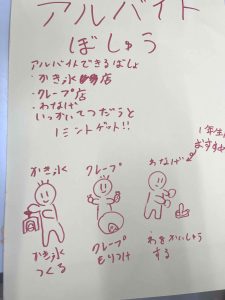 アルバイト
ぼしゅう
アルバイトできるばしょ
・かき氷店
・クレープ店
・わなげ
いっかいてつだうと
1ミントゲット!!
1年生に
おすすめ
かき氷
クレープ
わなげ
かき氷
つくる
クレープ
もりつけ
わをかいしゅう
する